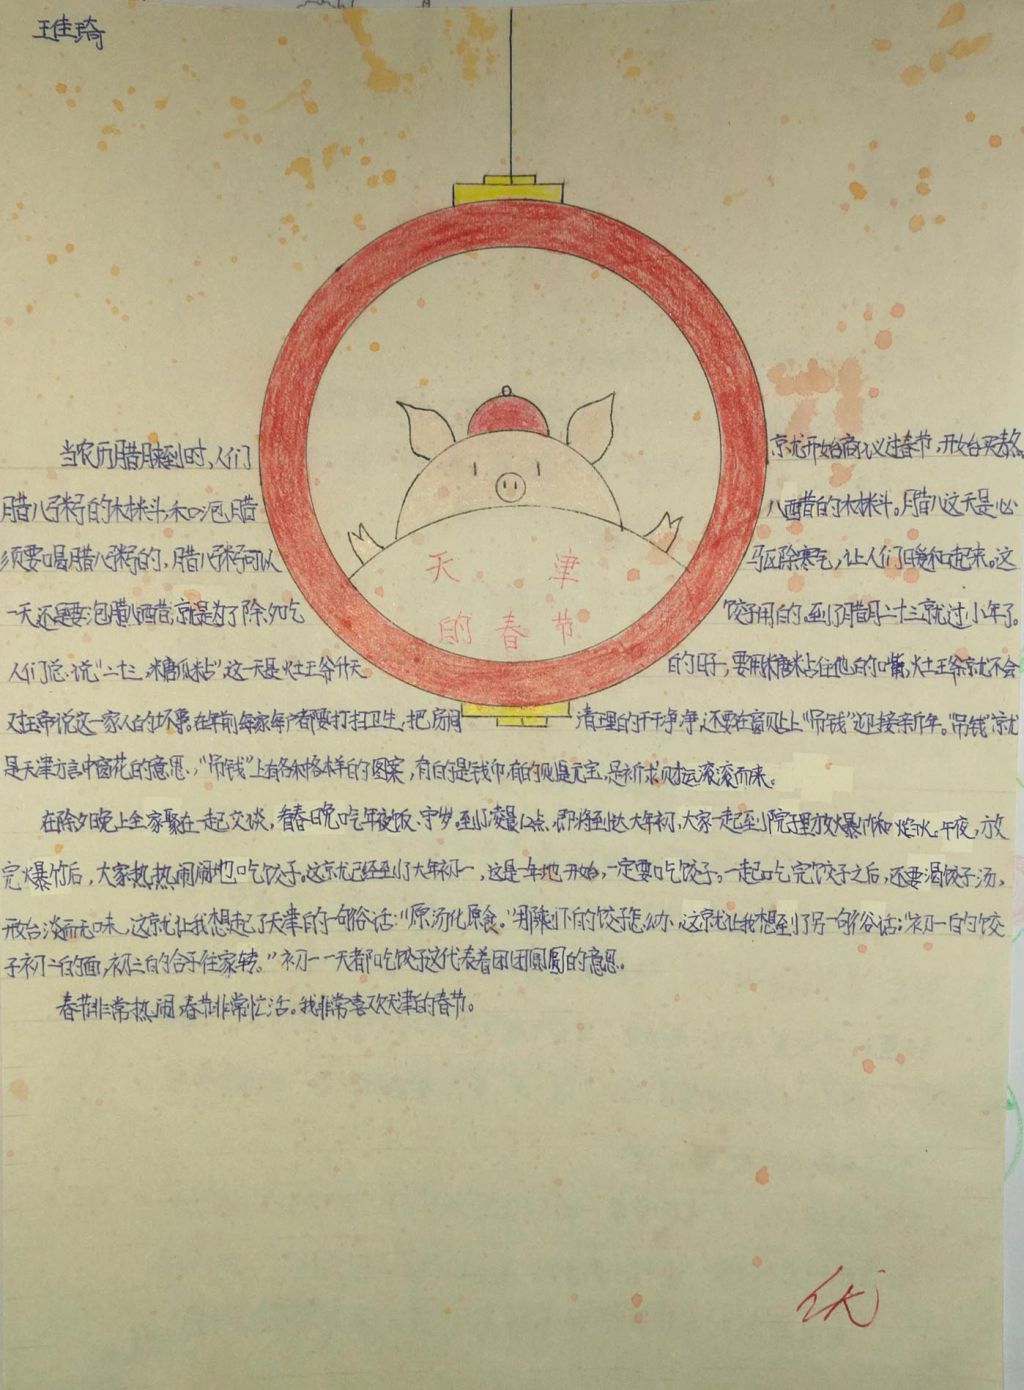 王佳琦
当农历腊月来到时,人们就开始商议过春节,开始买熬
腊八粥的材料和泡腊八醋的材料。腊八这天是必
须要喝腊八粥的,腊八粥可以驱除寒气,让人们暖和起来。这
一天还是要泡腊八醋,就是为了除夕吃饺子用的,到了腊月二十三就过小年了。
人们总说“二十三,糖瓜粘”这一天是灶王爷升天的日子,要用糖粘住他的嘴,灶王爷就不会
对玉帝说这一家人的坏事。在年前每家每户都要打扫卫生,把房间清理的干干净净,还要在窗贴上“吊钱”迎接新年。“吊钱”就
是天津方言中窗花的意思,“吊钱”上有各种各样的图案,有的是钱币,有的则是元宝,是祈求财运滚滚而来。
在除夕晚上全家聚在一起交谈,看春晚吃年夜饭、守岁。到了凌晨12点,即将到达大年初一,大家一起到小院子里放爆竹和焰火。午夜,放
完爆竹后,大家热热闹闹地吃饺子。这就已经到了大年初一,这是一年地开始,一定要吃饺子,一起吃完饺子之后,还要喝饺子汤,
虽淡而无味,这就让我想起了天津的一句俗话:“原汤化原食。”那剩下的饺子怎么办,这就让我想到了另一句俗话:“初一的饺
子初二的面,初三的合子往家转。”初一一天都吃饺子这代表着团团圆圆的意思。
春节非常热闹,春节非常忙活。我非常喜欢天津的春节。
天津
的春节
优